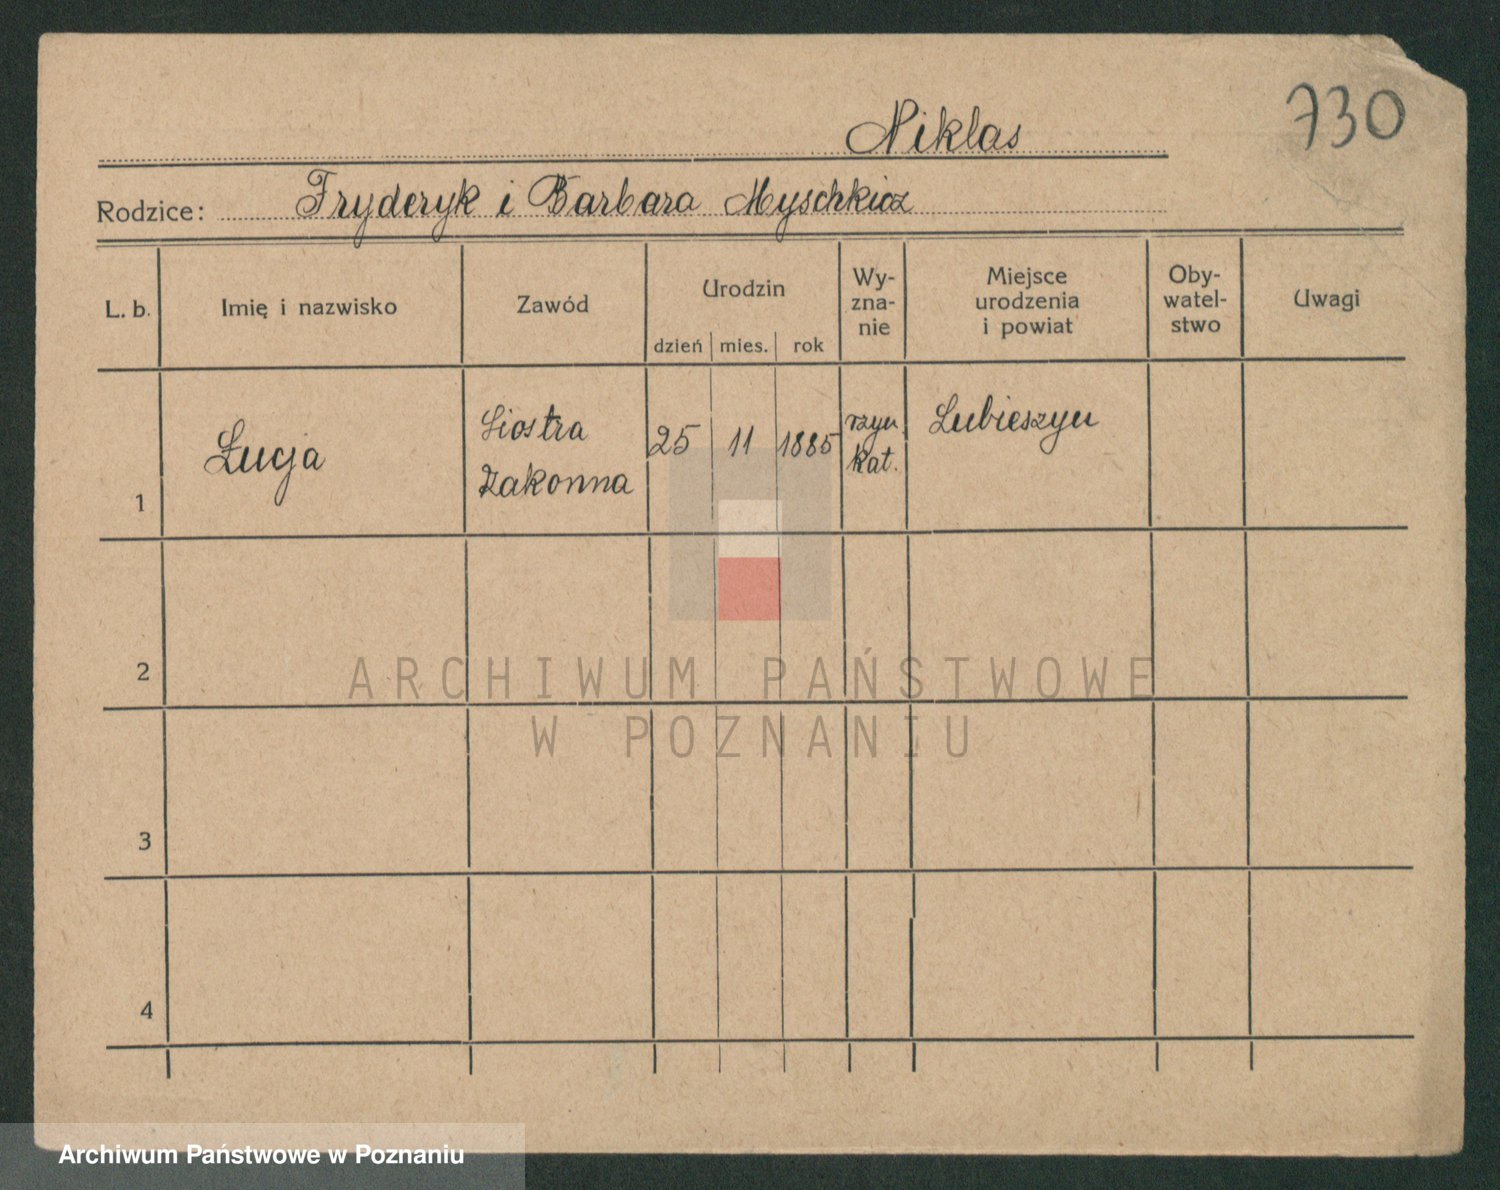 730
Niklas
Rodzice: Fryderyk i Barbara Myschkicz
L. b. Imię i nazwisko Zawód Urodzin Wy-zna-nie Miejsce urodzenia i powiat Oby-watel-stwo Uwagi
dzień mies. rok
1 Łucja Siostra Zakonna 25 11 1885 rzym kat. Lubieszyn
2
ARCHIWUM PAŃSTWOWE
W POZNANIU
3
4
Archiwum Państwowe w Poznaniu